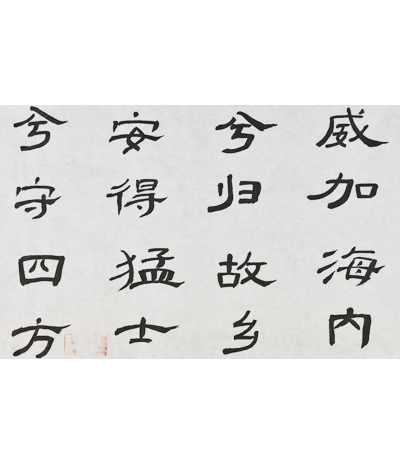 威加海内
兮归故乡
安得猛士
兮守四方